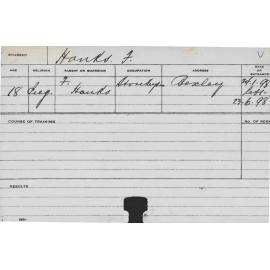 STUDENT Hanks. F.
AGE RELIGION PARENT OR GUARDIAN OCCUPATION ADDRESS DATE OF ENTRANCE
18 F. Hanks Storekeeper Boxley 24.1.98
left.
23.6.98
COURSE OF TRAINING NO. OF
RESULTS